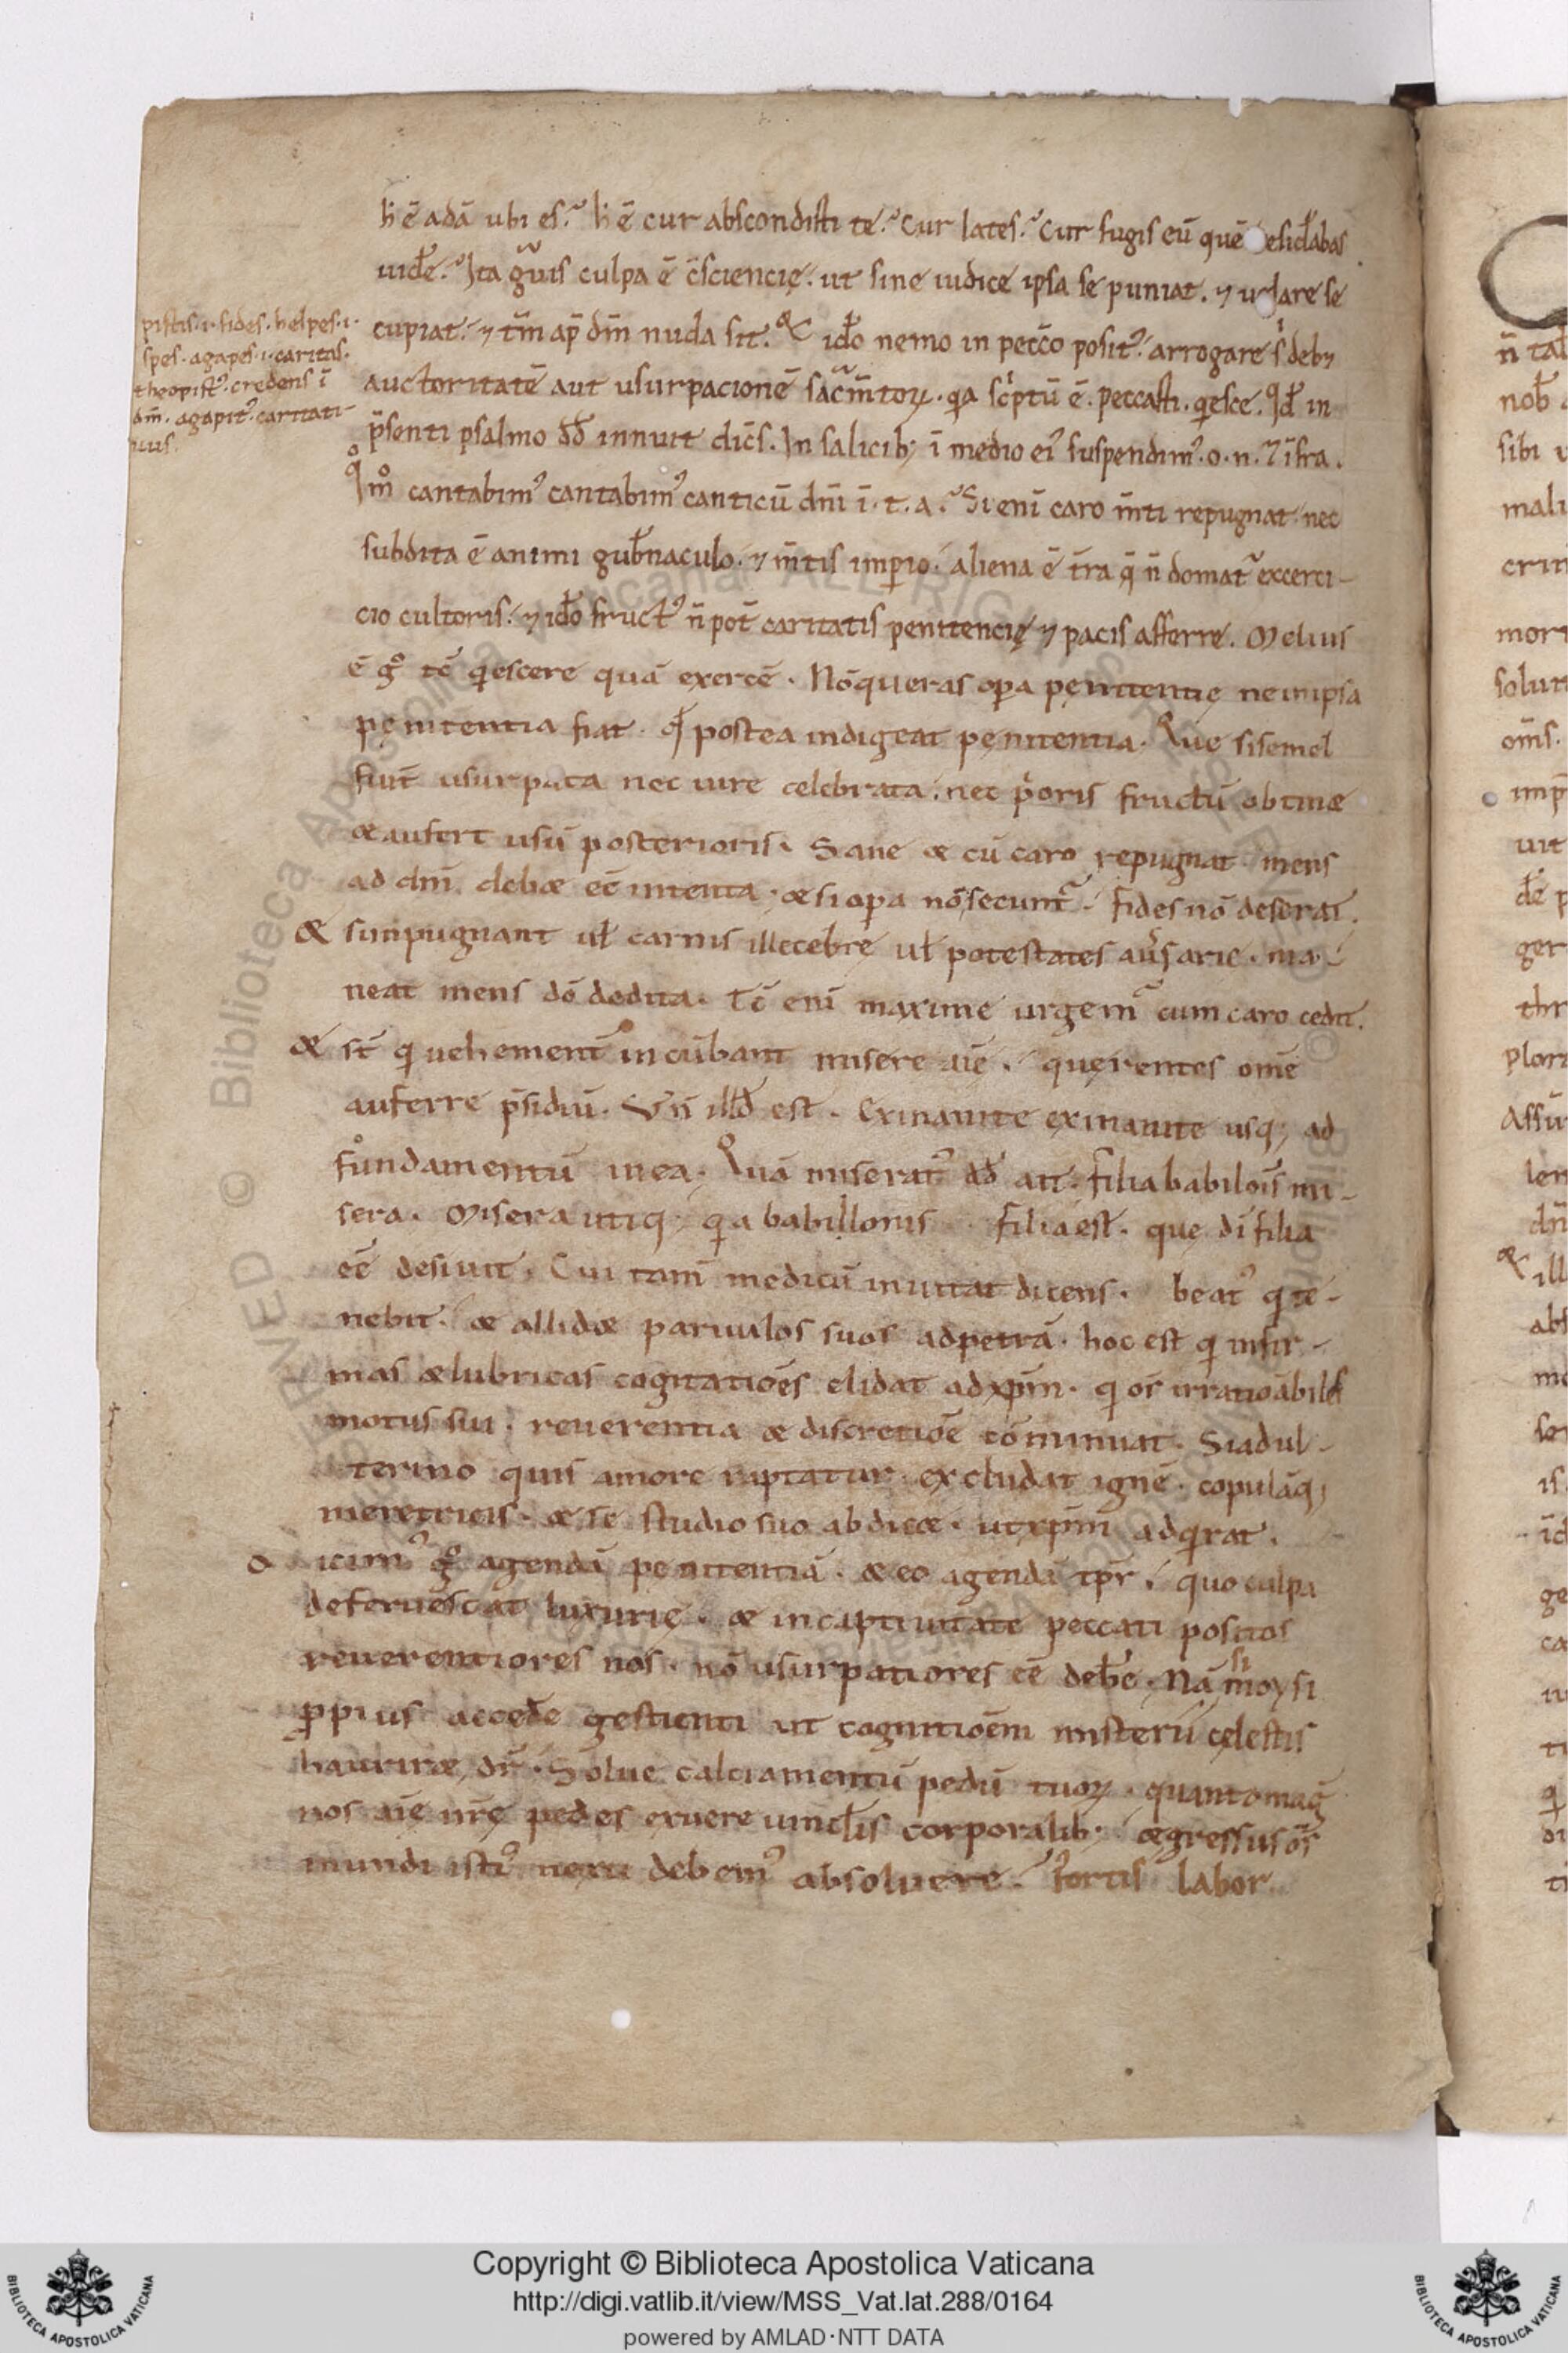 pistis·i·fides·helpes·i·
spes·agapes·i·caritas·
theopist᾽·credens ī
dm̄·agapit᾽·caritati-
uus·
h̄ ē adā ubi es? h̄ ē cur abscondisti te? Cur lates? Cur fugis eū quē esid̄abas
uid̄e? Ita g̃uis culpa ē c̄sciencię· ut sine iudice ipsa se puniat· ⁊ uelare se
cupiat· ⁊ tm̄ ap̄ dm̄ nuda sit· & id̄o nemo in pecc̄o posit᾽ arrogare s͛ deb₇
auctoritatē aut usurpacionē sac̃m̄toꝝ· qa sc͛ptū ē· peccasti· qesce· Id̄ in
p̄senti psalmo dd̄ innuit dic̄s· In salicib; ī medio ei᾽ suspendim᾽·o·n·⁊ īfra·
Qm̊ cantabim᾽ cantabim᾽ canticū dn̄i ī·t·a? Si enī caro m̄ti repugnat nec
subdita ē animi gub̄naculo· ⁊ m̄tis imꝑio· aliena ē t̄ra q̄ n̄ domat᷑ excerci-
cio cultoris· ⁊ id̄o fruct᾽ n̄ pot̄ caritatis penitencię ⁊ pacis afferre. Melius
ē g̊ tc̄ qescere quā exercē· Nōqueras oꝑa pęnitentię ne in ipsa
pęnitentia fiat· qd̄ postea indigeat pęnitentia· Que si semel
fuit̄ usurpata nec iure celebrata· nec p͛oris fructū obtin&
& aufert usū posterioris· Sane & cū caro repugnat mens
ad dn̄i deb& eē intenta· & si oꝑa nō secunt᷑· fides nō deserat·
& si inpugnant ul̄ carnis illecebre ul̄ potestates au̓sarie· ma-
neat mens dō dedita· Tc̄ enī maxime urgem᷑ cum caro cedit·
& st̄ qi uehement̄ incūbant misere aīę· querentes omē
auferre p̄sidiū· Un̄ illd̄ est· Exinanite exinanite usq; ad
fundamentū in ea· Quā miserat᾽ dd̄ ait· filia babilōis mi-
sera· Misera utiq; qa babillonis filia est· quę di filia
eē desiuit· Cui tam̄ medicū inuitat dicens· beat᾽ qi te-
nebit· & allid& paruulos suos ad petrā· hoc est qi infir-
mas & lubricas cogitatiōes elidat ad xp̄m· qi os̄ irratioābiles
motus sui· reuerentia & discretiōe cōminuat· Si adul-
terino quis amore raptatur· excludat ignē· copulāq;
meretricis· & se studio suo abdic&· ut xp̄m adqirat·
Dicim᾽ g̊ agendā penitentiā· & eo agendā tp̄r· quo culpa
deferuescat luxurię· & in captiuitate peccati positos
reuerentiores nos· nō usurpatiores eē deb̄e· Nā si moysi
ꝓpius acced̄e gestienti ut cognitiōem misterii cęlestis
haurir&, dr̄· Solue calciamentū pedū tuoꝝ· quanto mag̅
nos aīę nr̄ę pedes exuere uincl̄is corporalib;· & gressus os̄
mundi isti᾽ nexu debem᾽ absoluere? Fortis labor
Copyright © Biblioteca Apostolica Vaticana
http://digi.vatlib.it/view/MSS_Vat.lat.288/0164
powered by AMLAD·NTT DATA